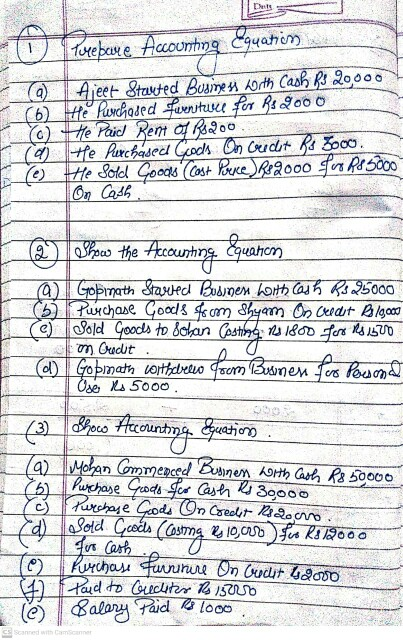 Date
1 Prepare Accounting Equation
(a) Ajeet Started Business with Cash Rs 20,000
(b) He Purchased furniture for Rs 2000
(c) He Paid Rent of Rs 200.
(d) He Purchased Goods On Credit Rs 3000.
(e) He Sold Goods (Cost Price) Rs 2000 for Rs 5000
On Cash.
2 Show the Accounting Equation
(a) Gopinath Started Business with Cash Rs 25000
(b) Purchase Goods from Shyam On Credit Rs 10,000
(c) Sold Goods to Sohan Costing Rs 1800 for Rs 1500
on Credit.
(d) Gopinath withdrew from Business for Personal
Use Rs 5000.
(3) Show Accounting Equation.
(a) Mohan Commenced Business with Cash Rs 50,000
(b) Purchase Goods for Cash Rs 30,000
(c) Purchase Goods On Credit Rs 20,000.
(d) Sold Goods (Costing Rs 10,000) for Rs 12000
for Cash
(e) Purchase furniture On Credit Rs 2000
(f) Paid to Creditor Rs 15000
(e) Salary Paid Rs 1000.
CS Scanned with CamScanner